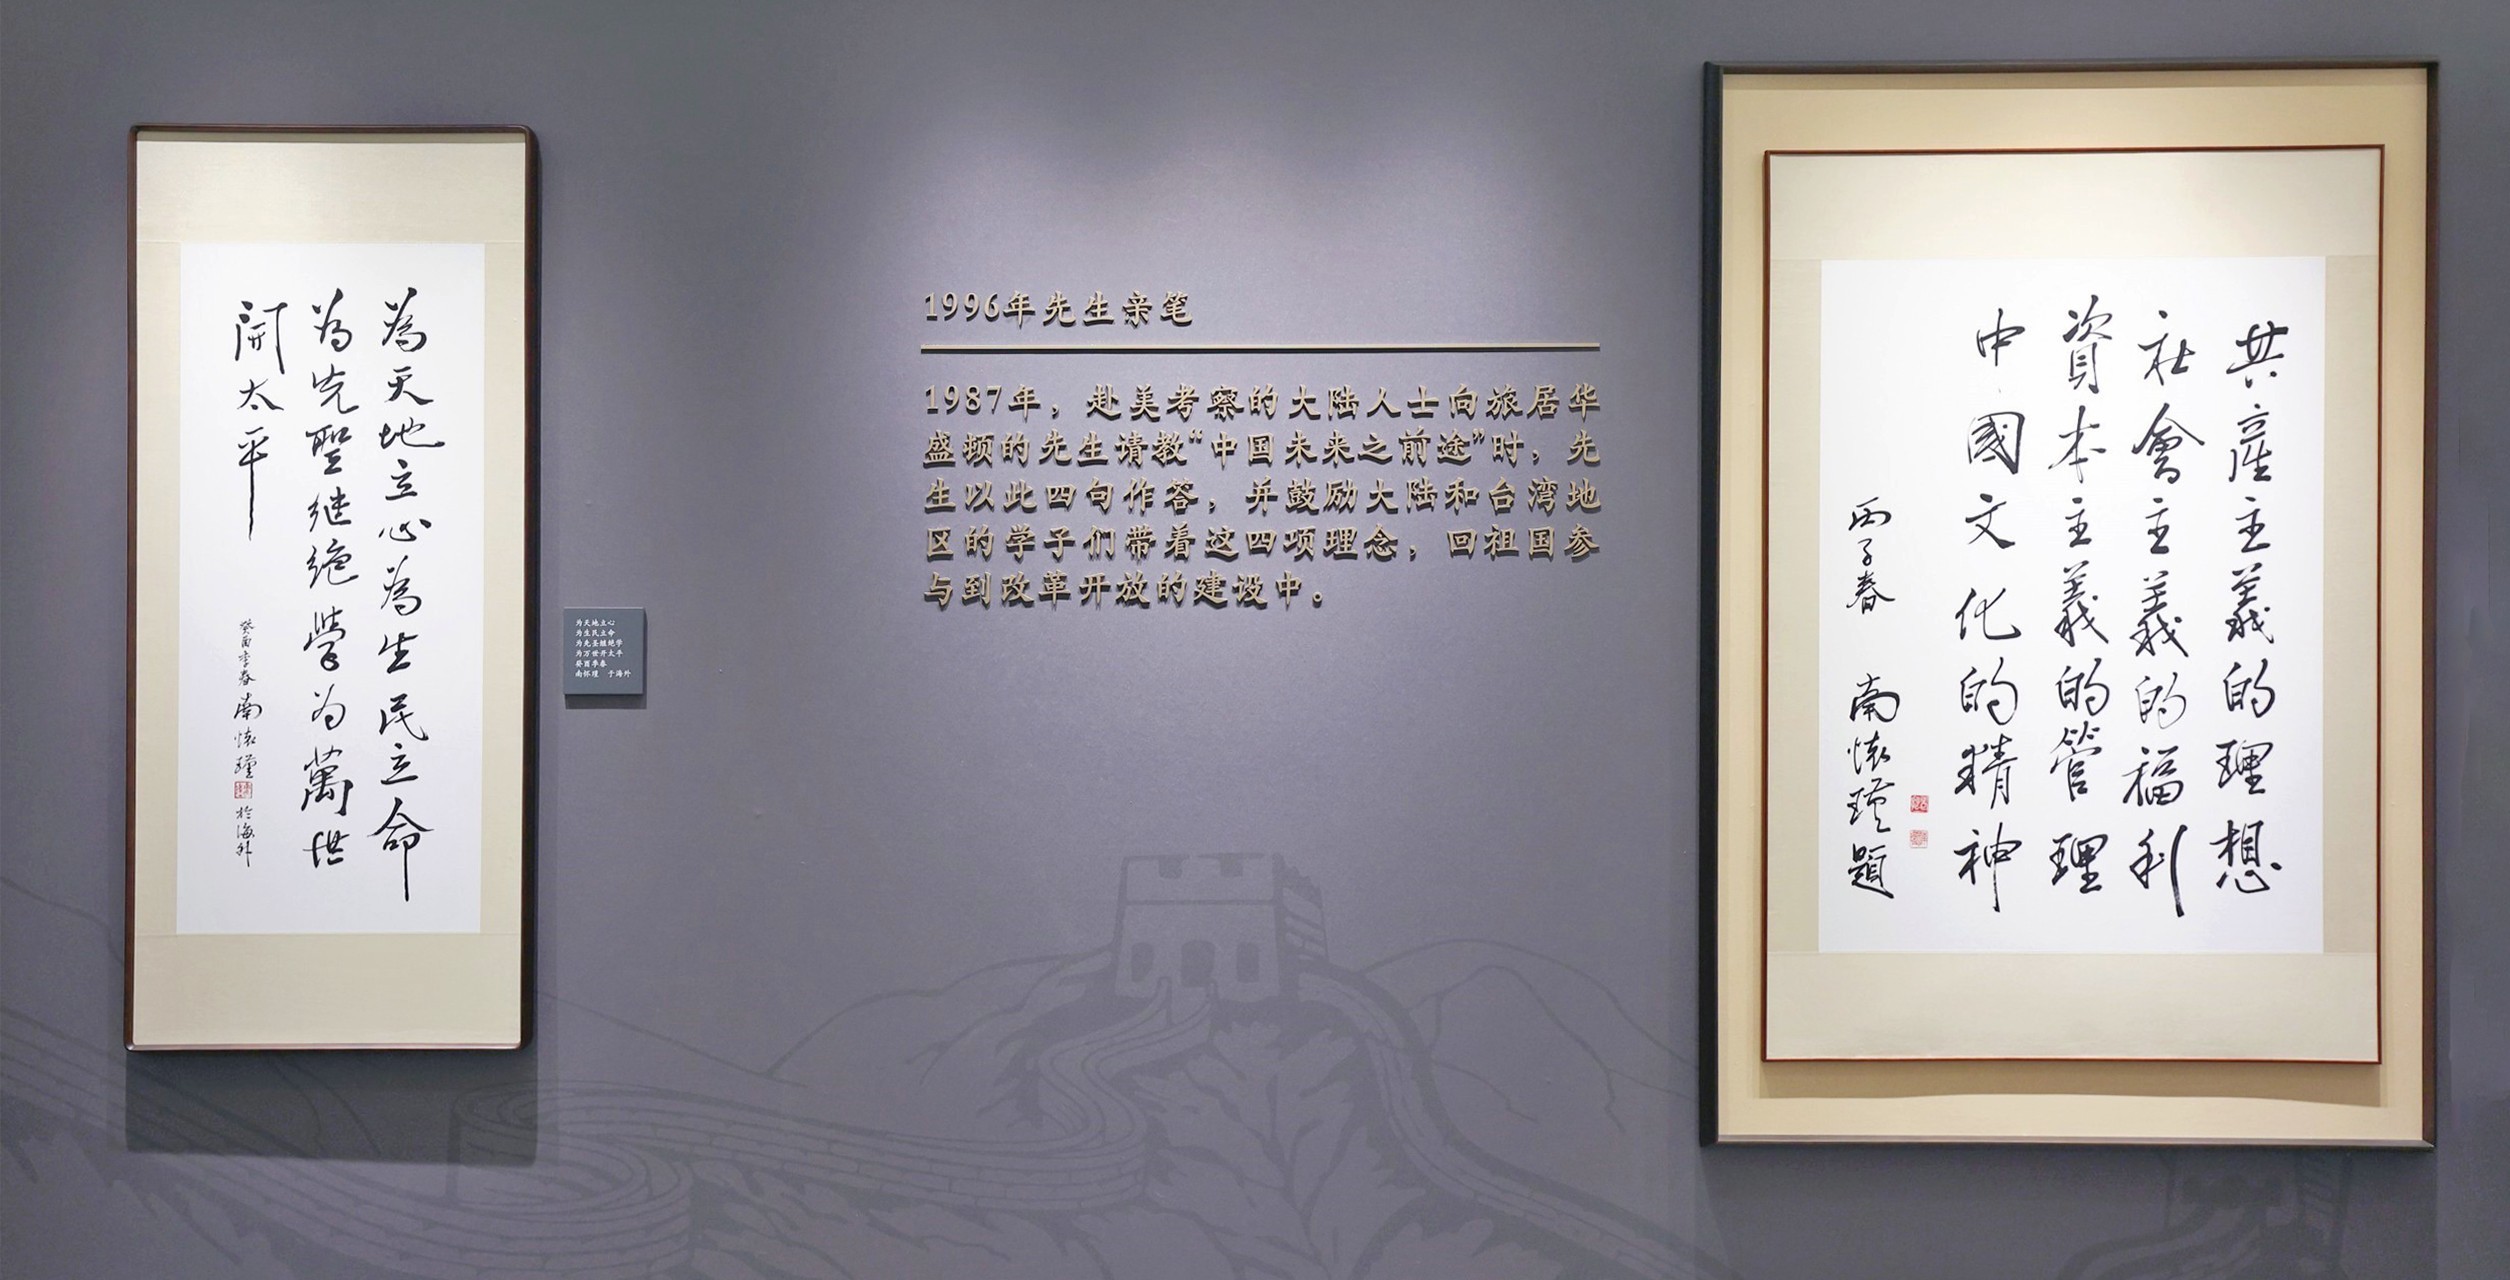 為天地立心為生民立命
為先聖继绝學为萬世
開太平
癸酉季春南懷瑾於海外
为天地立心
为生民立命
为先圣继绝学
为万世开太平
癸酉季春
南怀瑾 于海外
1996年先生亲笔
1987年，赴美考察的大陆人士向旅居华
盛顿的先生请教“中国未来之前途”时，先
生以此四句作答，并鼓励大陆和台湾地
区的学子们带着这四项理念，回祖国参
与到改革开放的建设中。
共產主義的理想
社會主義的福利
資本主義的管理
中國文化的精神
丙子春 南懷瑾題